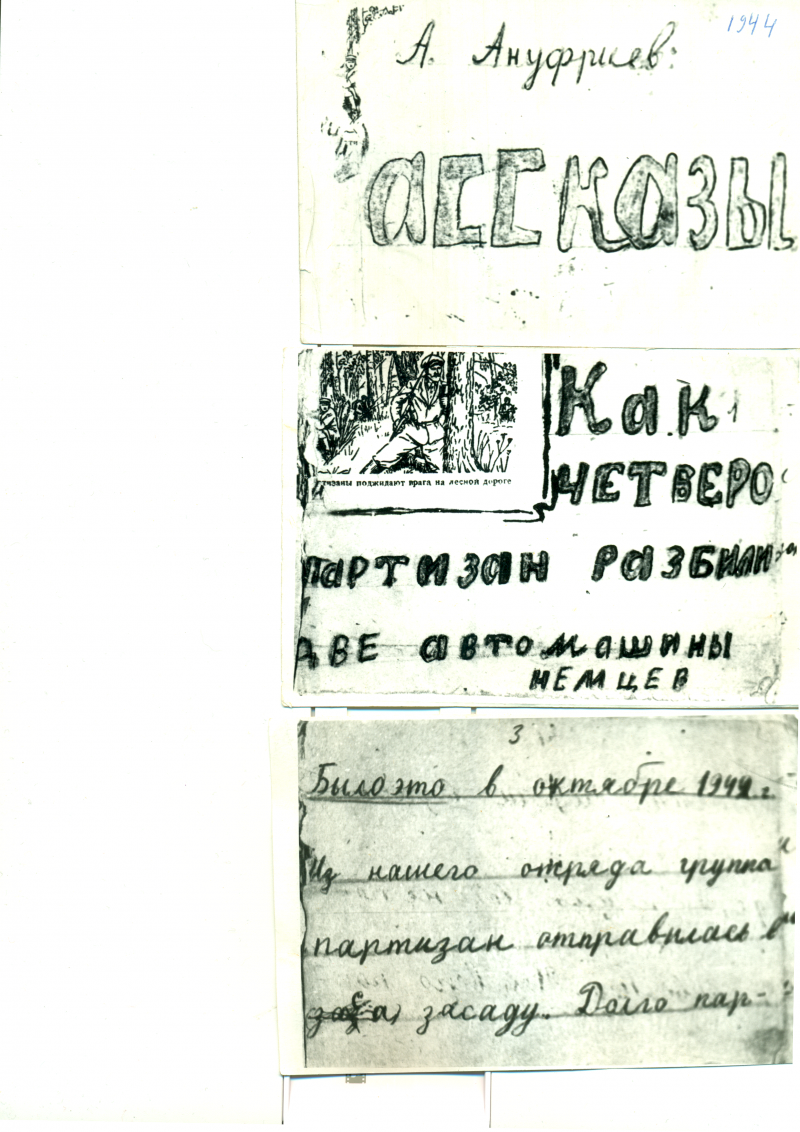 1944
А. Ануфриев:
АССКАЗЫ
Как
ЧЕТВЕРО
тизаны поджидают врага на лесной дороге
ПАРТИЗАН РАЗБИЛИ
ДВЕ АВТОМАШИНЫ
НЕМЦЕВ
3
Было это в октябре 1942 г.
Из нашего отряда группа
партизан отправилась в
засаду. Долго пар-